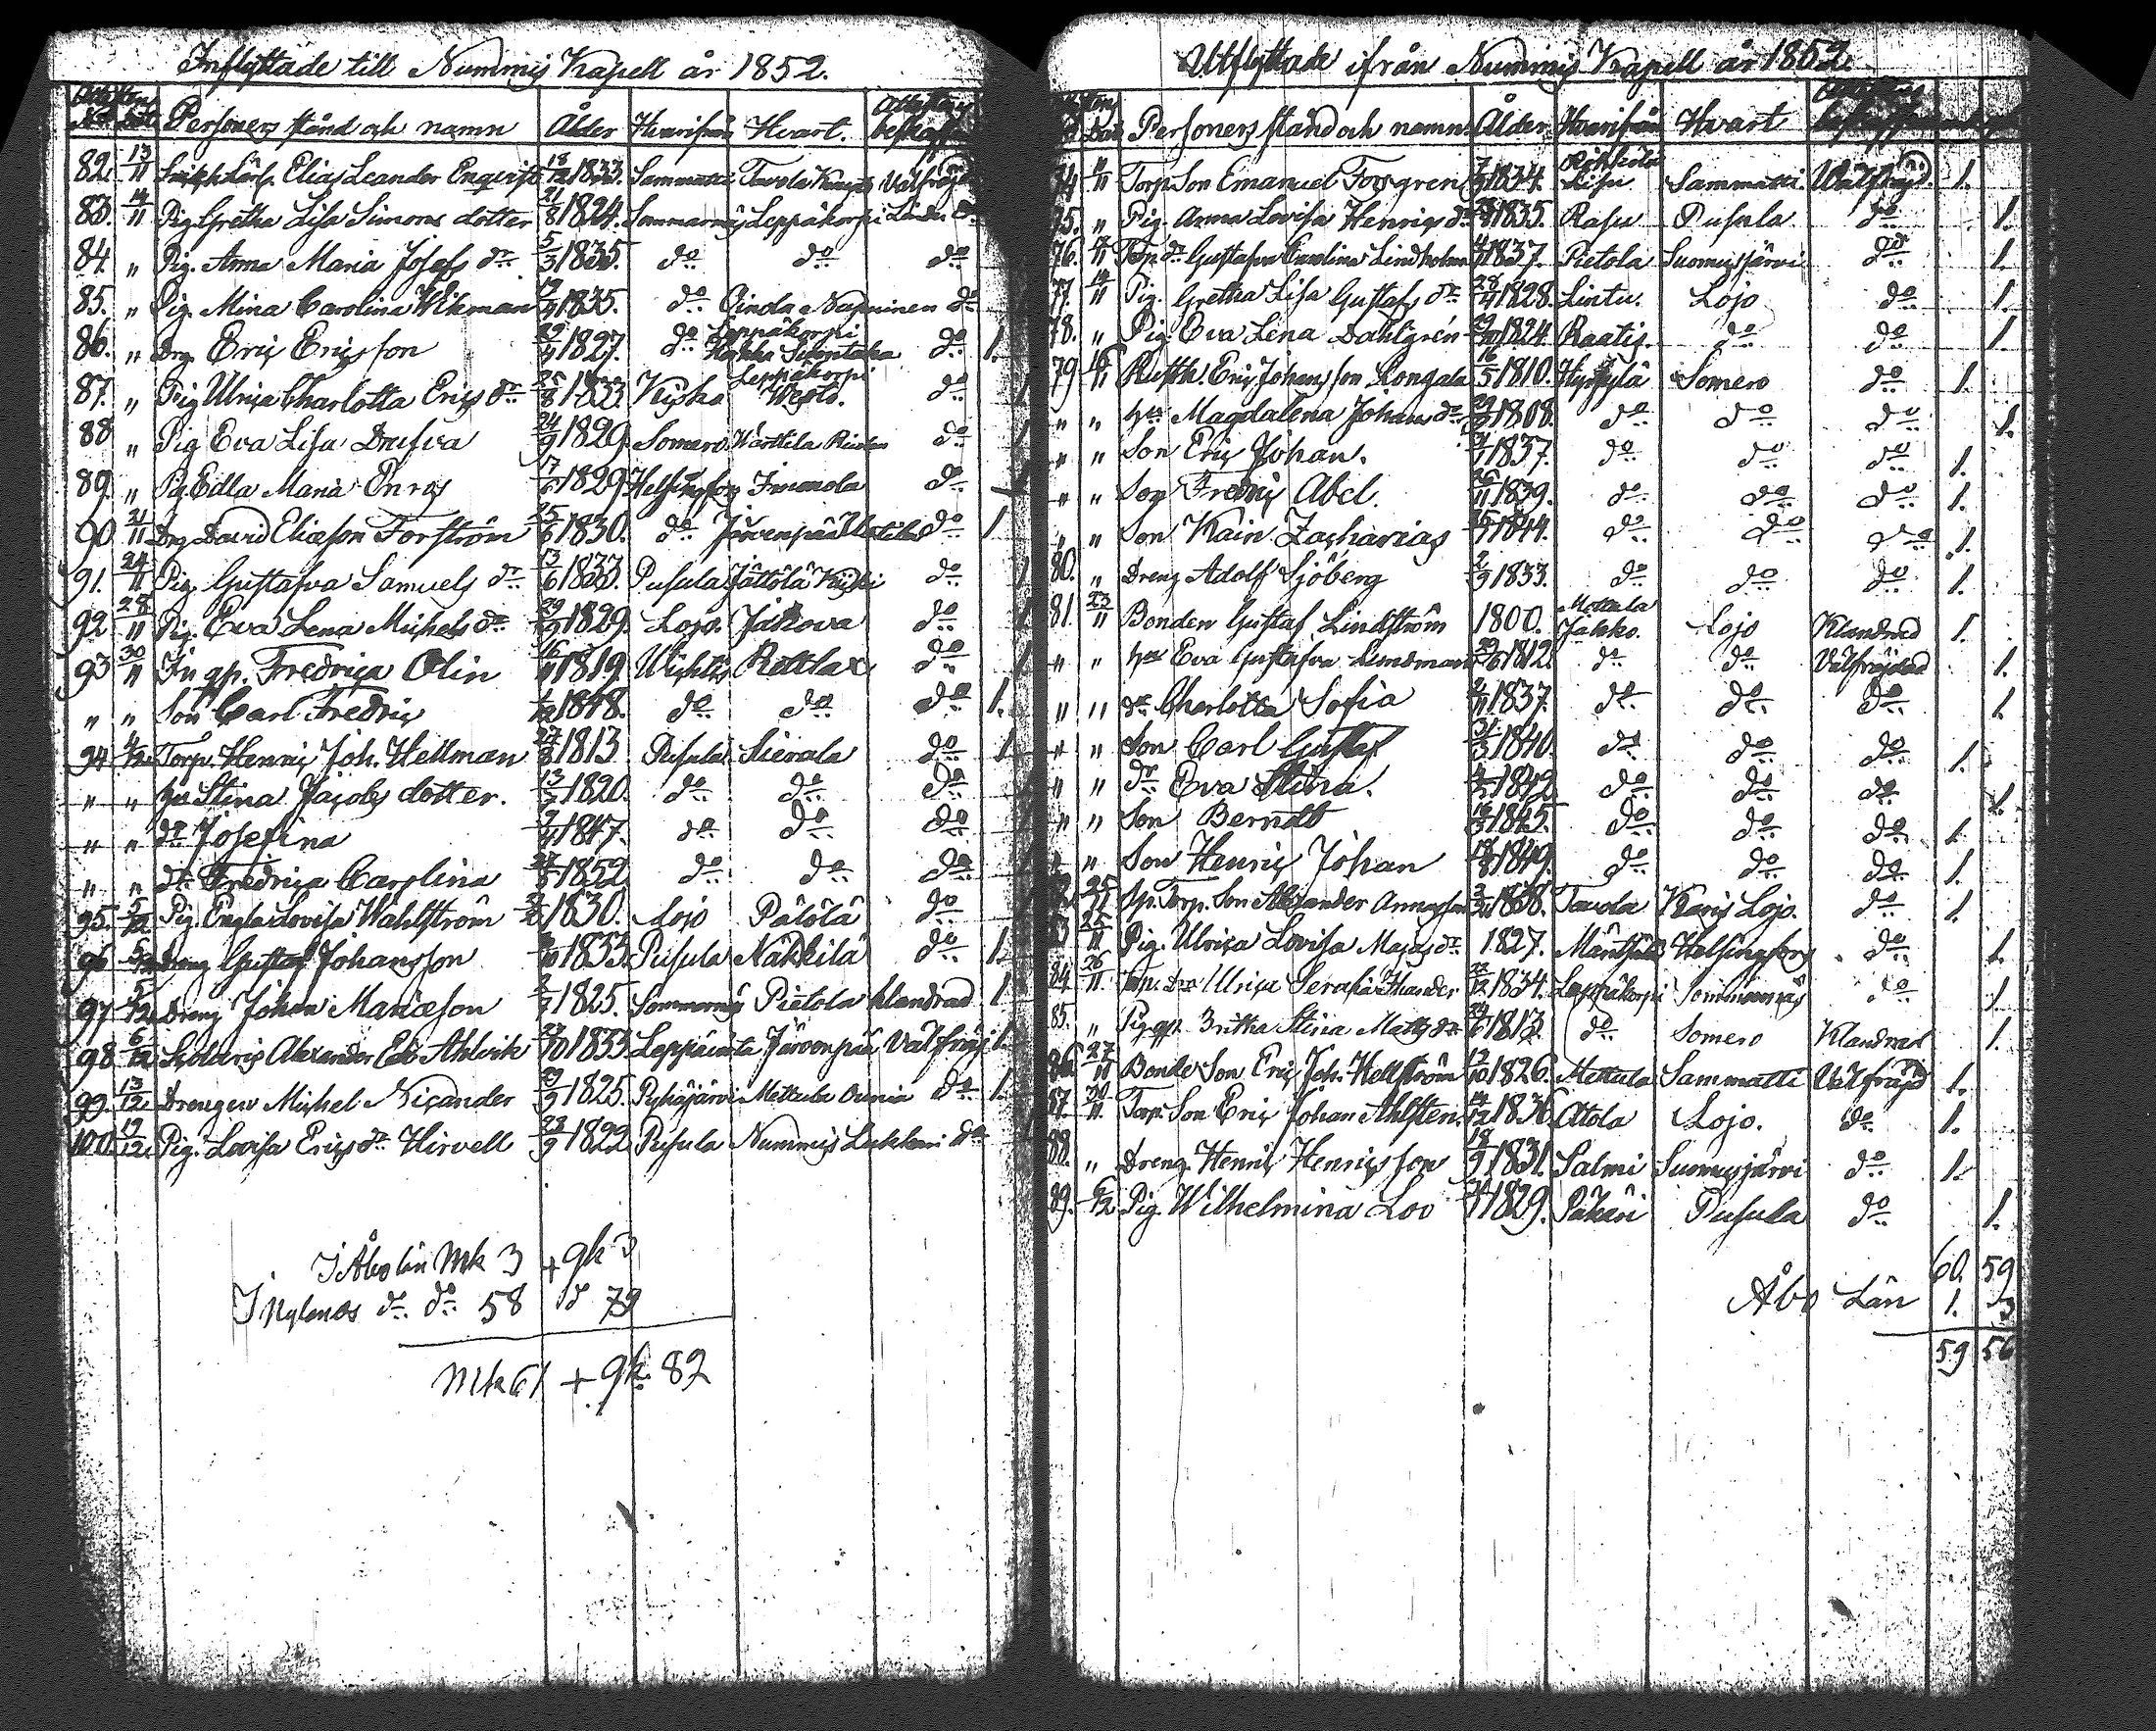 Inflyttade till Nummis Kapell år 1852.
Personers stånd och namn Ålder Hvarifrån Hvart.
82. 13/11 Elias Leander Enqvist 18/12 1833. Sammatti Tavola Välfräjd
83. 14/11 Pig. Gretha Lisa Simons dotter 21/8 1824. Sommarnäs Leppäkorpi
84. " Pig. Anna Maria Josefs dr 5/3 1835. do do do
85. " Pig. Mina Carolina Wikman 1835. do Napuinen do
86. " Drg. Eric Ericsson 1827. do Leppäkorpi do 1.
87. " Pig Ulrica Charlotta Erics dr 1833. Leppäkorpi do
88 " Pig Eva Lisa Drufva 24/9 1829. Somero do
89. " Pig. Edla Maria Enros 17/6 1829 Helsingfors Immola do
90 21/11 Drg. David Eliasson Forström 25/6 1830. do Järvenpää do 1.
91. 24/11 Pig. Gustafva Samuels dr 13/6 1833. Pusula Jättölä do 1
92 28/11 Pig. Eva Lena Michels dr 29/9 1829. Lojo. Jakova do 1.
93 30/11 In gp. Fredrica Olin 16/11 1819. Wichtis Rottla do 1
" " Son Carl Fredric 1848. do do do 1.
94 4/12 Torp. Henric Joh. Hellman 27/8 1813 Pusula Sierala do 1.
" " hu Stina Jacobs dotter. 13/7 1820. do do do
" " dr Josefina 1847. do do do
" " dr Fredrica Carolina 1852 do do do
95. 5/12 Pig. Engla Lovisa Wahlström 1830. Lojo Pätölä do
96 5/12 Dreng Gustaf Johansson 1833. Pusula Näkkilä do 1.
97 5/12 Dreng Johan Mariæson 1825. Sommarnäs Pietola Klandrad 1.
98 6/12 Alexander Edv. Ahlvik 23/10 1833 Järvenpää Välfräjd 1.
99. 13/12 Drengen Michel Nicander 29/9 1825. Pyhäjärvi Mettula do 1.
100. 17/12. Pig. Lovisa Erics dr Hirvell 23/9 1822 Pusula Nummis do
I Åbo län Mk 3 + qk 3
I Nylands do. do. 58 do 79
Mk 61 + qk. 82
Utflyttade ifrån Nummis Kapell år 1852.
Personers stånd och namn Ålder. Hvarifrån Hvart
74 Torp Son Emanuel Forsgren 1834. Sammatti. Välfräjd. 1.
75. " Pig. Anna Lovisa Henrics dr 1835. Rasu Pusula do 1.
76. Torp. dr Gustafva Carolina Lindholm 1837. Pietola Suomusjärvi do 1.
77. 14/11 Pig. Gretha Lisa Gustafs dr 28/4 1828. Lintu. Lojo do 1.
78. " Pig. Eva Lena Dahlgrén 29/10 1824. Raatis. do do 1
79 Eric Johansson Longala 16/5 1810. Hyrsylä Somero do 1.
" " hu Magdalena Johans dr 1808. do do do 1.
" " Son Eric Johan. 1837. do do do 1.
" " Son Fredric Abel. 26/11 1839. do do do 1.
" " Son Kain Zacharias 1844. do do do 1.
80. " Dreng Adolf Sjöberg 2/9 1833. do do do 1.
81. 23/11 Bonden Gustaf Lindström 1800. Mettula Jakko. Lojo Klandrad 1.
" " hu Eva Gustafva Lundman 1812. do do Välfräjdad 1.
" " dr Charlotta Sofia 1837. do do do 1.
" " Son Carl Gustaf 31/3 1840. do do do 1.
" " dr Eva Stina. 1842. do do do 1.
" " Son Berndt 1845. do do do 1.
" " Son Henric Johan 1849. do do do 1.
Torp. Son Alexander 1838. Tavola Karis Lojo. do 1.
83 25/11 Pig. Ulrica Lovisa Majas dr 1827. Helsingfors do 1.
84. 26/11 Torp. Dr Ulrica Serafia 1834. Leppäkorpi Sommarnäs do 1.
85. " Britha Stina Matts dr 1813. do Somero Klandrad 1.
86. 27/11 Bonde Son Eric Joh. Hellström 12/10 1826. Mettula Sammatti Välfräjd 1.
87. 30/11 Torp. Son Eric Johan Ahlsten. 1836. Atola Lojo. do 1.
88. " Dreng. Henric Henricsson 1831. Salmi Suomusjärvi do 1.
89. 6/12 Pig. Wilhelmina Lov 1829. Päkäri Pusula do 1.
60. 59
Åbo Län 1. 3
59 56